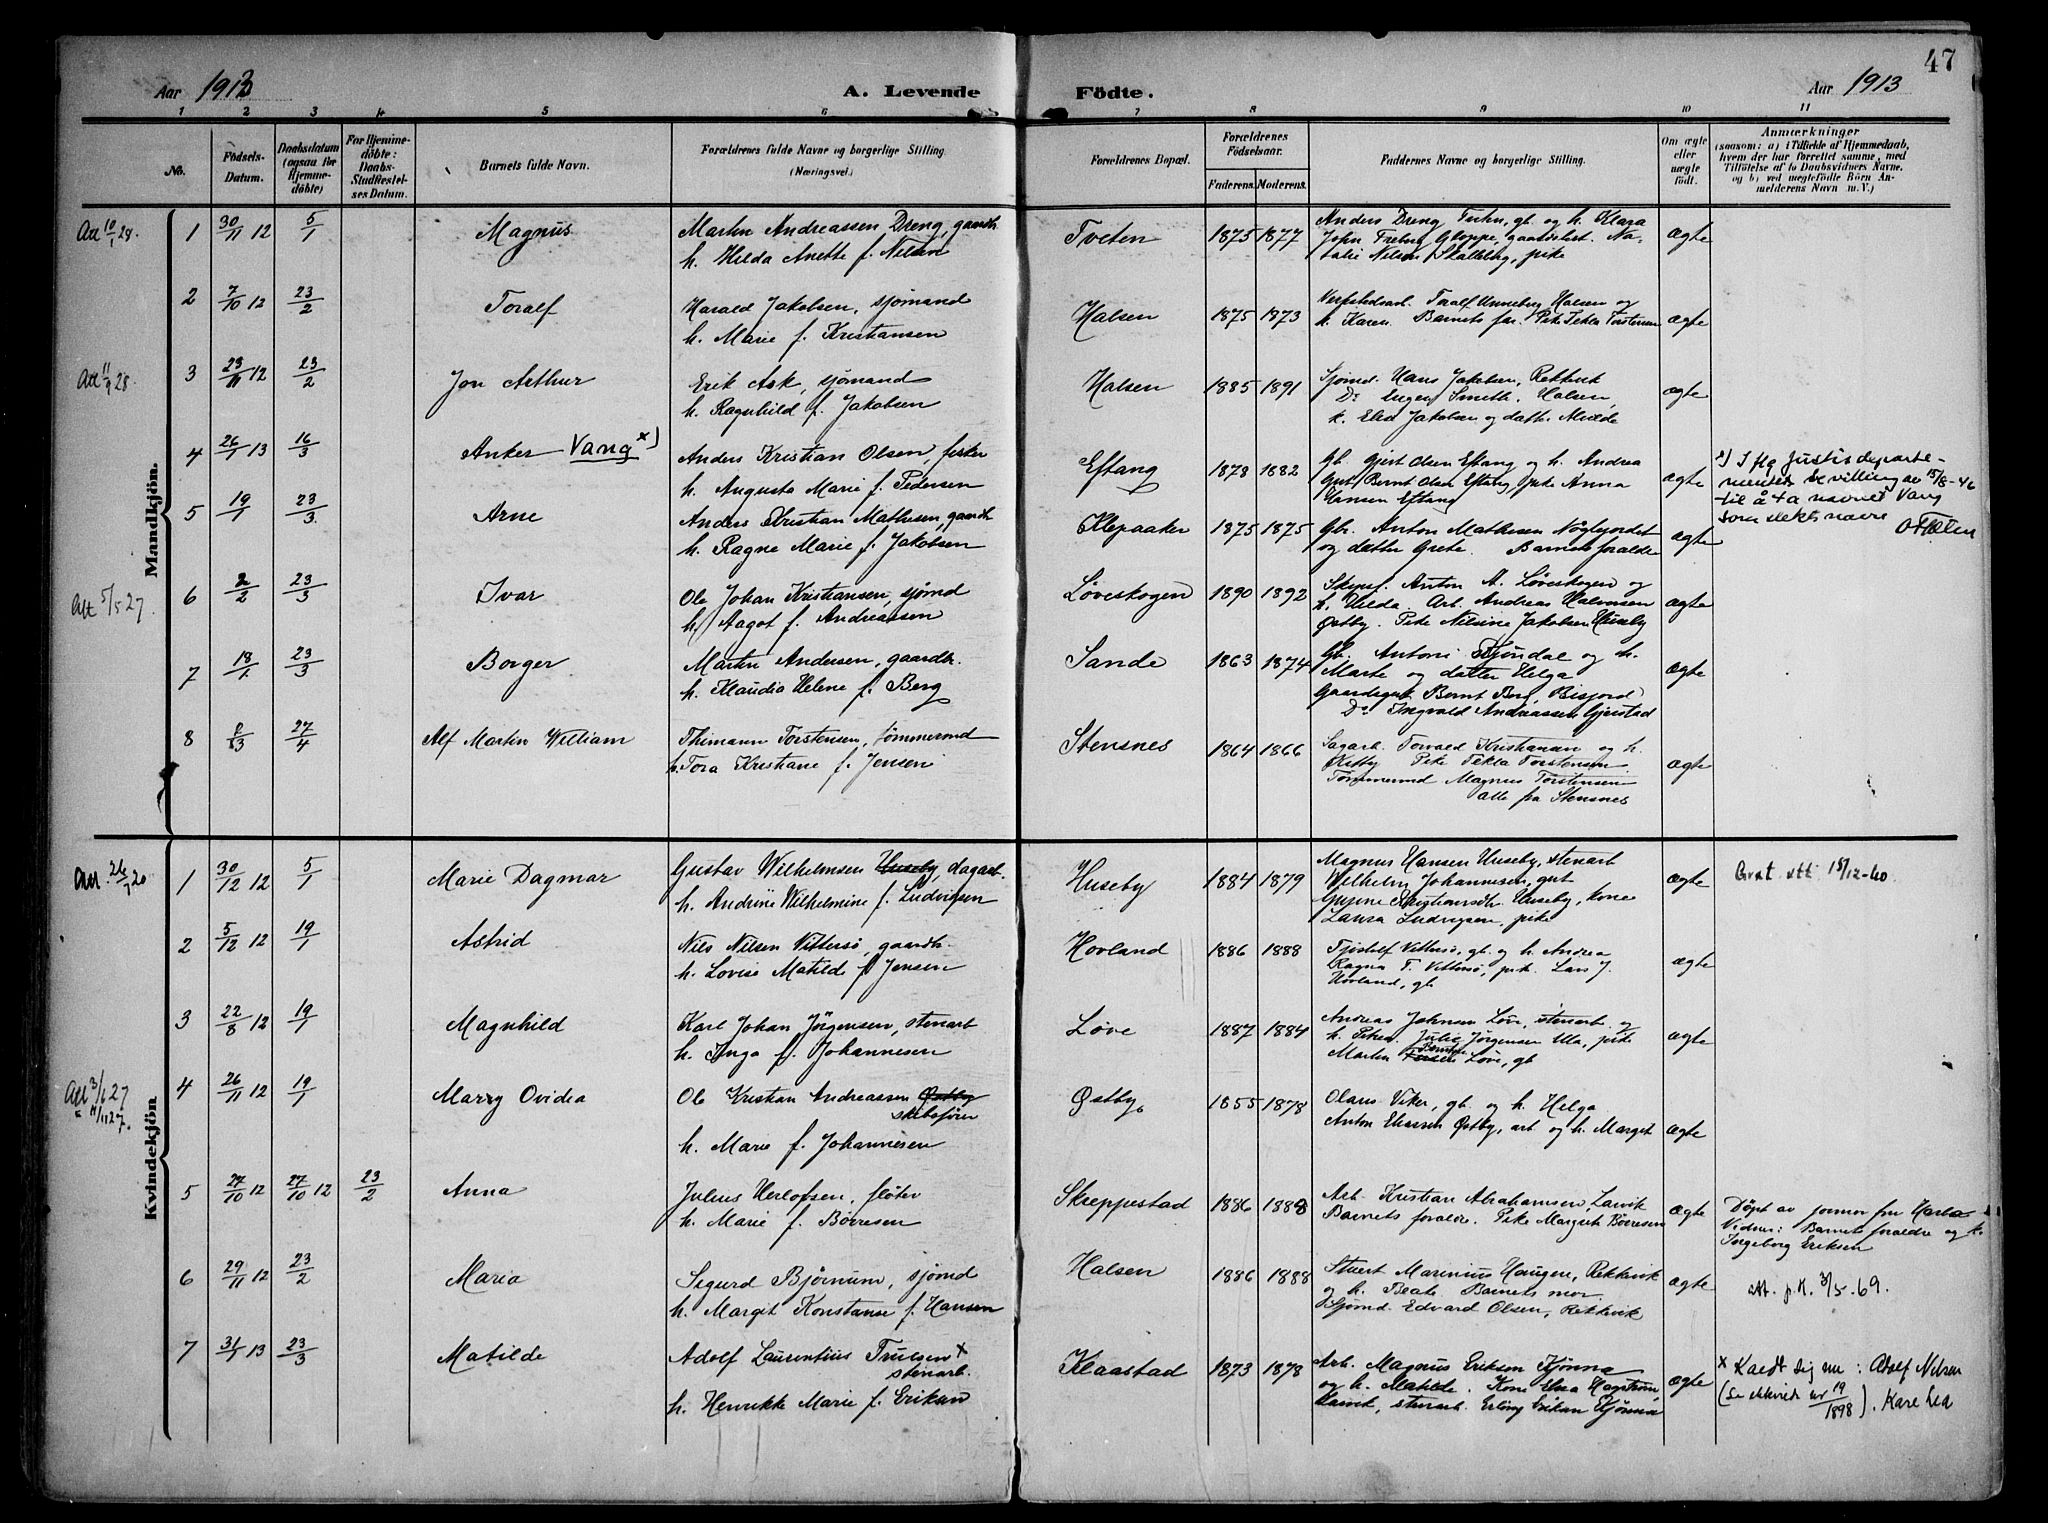 47
Aar 1913 A. Levende Födte. Aar 1913
1 2 3 4 5 6 7 8 9 10 11
No.
Födsels-Datum.
Daabsdatum (ogsaa for Hjemmedöbte)
For Hjemmedöbte: Daabs-Stadfæstelses Datum.
Barnets fulde Navn.
Forældrenes fulde Navne og borgerlige Stilling. (Næringsvei.)
Forældrenes Bopæl.
Forældrenes Födselsaar.
Faderens. Moderens.
Faddernes Navne og borgerlige Stilling.
Om ægte eller uægte födt.
Anmærkninger
(saasom: a) i Tilfælde af Hjemmedaab, hvem der har forrettet samme, med Tilföielse af to Daabsvidners Navne. og b) ved uægtefödte Börn Anmelderens Navn m. V.)
Mandkjön.
Att 10/1 28. 1 30/11 12 5/1 Magnus Martin Andreassen Dreng, gaardb. Tveten 1875 1877 Anders Dreng Tuhn, gb. og h. Klara ægte
h. Hilda Anette f. Nilsen John Freberg Gloppe, gaardbest. Na-
talie Nilsen Skalleberg, pike
2 7/10 12 23/2 Toralf Harald Jakobsen, sjømand Halsen 1875 1873 Verkstedsarb. Toralf Unneberg Halsen og ægte
h. Marie f. Kristiansen h. Karen. Barnets far. Pike Tekla Torstensen
Att 11/9 28 3 23/11 12 23/2 Jon Arthur Erik Ask, sjømand Halsen 1885 1891 Sjømd. Hans Jakobsen, Rekkevik ægte
h. Ragnhild f. Jakobsen Do Eugen Smith. Halsen,
k. Elise Jakobsen og datter Alvilde
4 26/1 13 16/3 Anker Vang x) Anders Kristian Olsen, fisker Eftang 1878 1882 Gb. Gjert Olsen Eftang og h. Andrea ægte x) I flg Justisdeparte-
h. Augusta Marie f. Pedersen Gut Bernt Olsen Eftang, pike Anna mentets bevilling av 15/8-46
Hansen Eftang til å ta navnet Vang
som slektsnavn
5 19/1 23/3 Arne Anders Christian Mathisen, gaardb. Klepaaker 1875 1875 Gb. Anton Mathisen Nøglegjordet ægte
h. Ragne Marie f. Jakobsen og datter Grete. Barnets foraldre
Att 5/5 27. 6 2/2 23/3 Ivar Ole Johan Kristiansen, sjømd Løveskogen 1890 1892 Skipsf. Anton A. Løveskogen og ægte
h. Aagot f. Andreassen h. Hilda. Arb. Andreas Halvorsen
Østby. Pike Nilsine Jakobsen Huseby
7 18/1 23/3 Borger Martin Andersen, gaardb. Sande 1863 1874 Gb. Antoni Skjøndal og h. ægte
h. Klaudia Helene f. Berg Marte og datter Helga
Gaardsgut Bernt Berg, Bisjord
Do Ingvald Andreassen Gjerstad
8 8/3 27/4 Alf Martin William Thimann Torstensen, tømmermd Stensnes 1864 1866 Sagarb. Torvald Kristiansen og h. ægte
h. Tora Kristiane f. Jensen Østby Pike Tekla Torstensen
Tømmermd Magnus Torstensen
alle fra Stensnes
Kvindekjön
Att. 26/1 20 1 30/12 12 5/1 Marie Dagmar Gustav Wilhelmsen Huseby, dagarb. Huseby 1884 1879 Magnus Hansen Huseby, stenarb ægte
h. Andrine Wilhelmine f. Ludvigsen Wilhelm Johannesen, gut
Gusine Kristiansdtr. Huseby, kone
Laura Ludvigsen, pike
2 5/12 12 19/1 Astrid Nils Nilsen Vittersø, gaardb. Hovland 1886 1888 Tjostolf Vittersø, gb. og h. Andrea ægte
h. Lovise Matilde f. Jensen Ragna T. Vittersø, pik. Lars J.
Hovland, gb
3 22/8 12 19/1 Magnhild Karl Johan Jörgensen, stenarb Løve 1887 1884 Andreas Johnsen Løve, stenarb. og ægte
h. Inga f. Johannesen h. Petrea. Julie Jørgensen Ula, pike
Martin Løve, gb
Att 3/6 27 4 26/11 12 19/1 Marry Ovidea Ole Kristian Andreassen Østby Østby 1855 1878 Olaus Viker, gb. og h. Helga ægte
" 4/11 27. skibsfører Anton Eliassen Østby, arb og h. Margit
h. Marie f. Johannesen
5 27/10 12 27/10 12 23/2 Anna Julius Herlofsen, fløter Skreppestad 1886 1888 Arb. Kristian Abrahamsen, Larvik ægte Døpt av jormor fru
h. Marie f. Børresen Barnets foraldre. Pike Margrit Børresen Vidner: Barnets foraldre og k.
Ingeborg Eriksen
6 29/11 12 23/2 Maria Sigurd Bjørnum, sjømd Halsen 1886 1888 Stuert Marinius Haugene, Rekkevik ægte att. p.k. 3/5-69.
h. Margit Konstanse f. Hansen og h. Beate. Barnets mor.
Sjømd. Edvard Olsen, Rekkevik
7 31/1 13 23/3 Matilde Adolf Laurentius Trulsen x Klaastad 1873 1878 Arb. Magnus Eriksen Kjønnø ægte x Kaldt sig nu: Adolf Nilsen
stenarb. og h. Matilde. Kone Elisa Hagstrøm,
h. Henrikke Marie f. Eriksen Larvik, stenarb. Erling Eriksen Kjønnø 19/1898). Kåre Lea